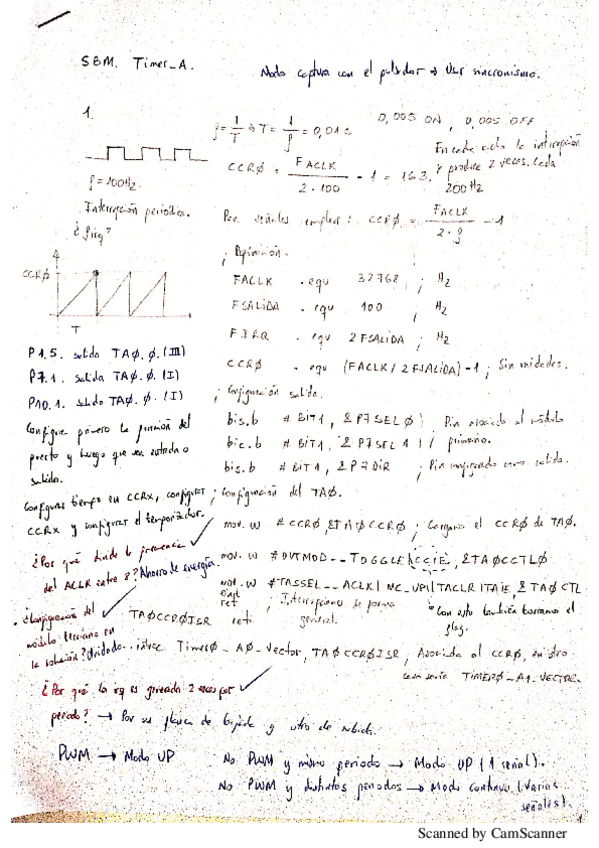 SBM. Timer_A.
Modo captura con el pulsador → Usar sincronismo.
1.
f = 1/T → T = 1/f = 0,01 s
0,005 ON, 0,005 OFF
CCRØ = FACLK / 2·100 - 1 = 163.
En cada ciclo la interrupción
se produce 2 veces. Cada
200Hz
f = 100Hz.
Interrupción periódica.
¿firq?
CCRØ = FACLK / 2·f - 1
; Definición.
CCRØ
T
FACLK .equ 32768 ; Hz
FSALIDA .equ 100 ; Hz
FIRQ .equ 2FSALIDA ; Hz
CCRØ .equ (FACLK/2FSALIDA)-1 ; Sin unidades.
P1.5. salida TAØ.Ø.(III)
P7.1. salida TAØ.Ø.(I)
P10.1. salida TAØ.Ø.(I)
; Configuración salida.
bis.b #BIT1, &P7SELØ ; Pin asociado al módulo
bic.b #BIT1, &P7SEL1 ; primario.
bis.b #BIT1, &P7DIR ; Pin configurado como salida.
Configurar primero la función del
puerto y luego que sea entrada o
salida.
Configurar tiempo en CCRx, configurar
CCRx y configurar el temporizador.
; Configuración del TAØ.
mov.w #CCRØ, &TAØCCRØ ; Cargamos el CCRØ de TAØ.
mov.w #OUTMOD__TOGGLE|CCIE, &TAØCCTLØ
mov.w #TASSEL__ACLK|MC_UP|TACLR|TAIE, &TAØCTL
¿Por qué divide la frecuencia
del ACLK entre 8? Ahorro de energía
eint
ret
; Interrupciones de forma
general.
* Con esto también borramos el
flag.
• ¿Configuración del
módulo terciario en
la solución? Olvidado.
TAØCCRØISR reti
intvec TimerØ_AØ_Vector, TAØCCRØISR ; Asociada al CCRØ, en otro
caso sería TIMERØ_A1_VECTOR.
¿Por qué la irq es generada 2 veces por
periodo? → Por un flanco de bajada y otro de subida.
PWM → Modo UP
No PWM y mismo periodo → Modo UP (1 señal).
No PWM y distintos periodos → Modo continuo (Varias
señales).
Scanned by CamScanner